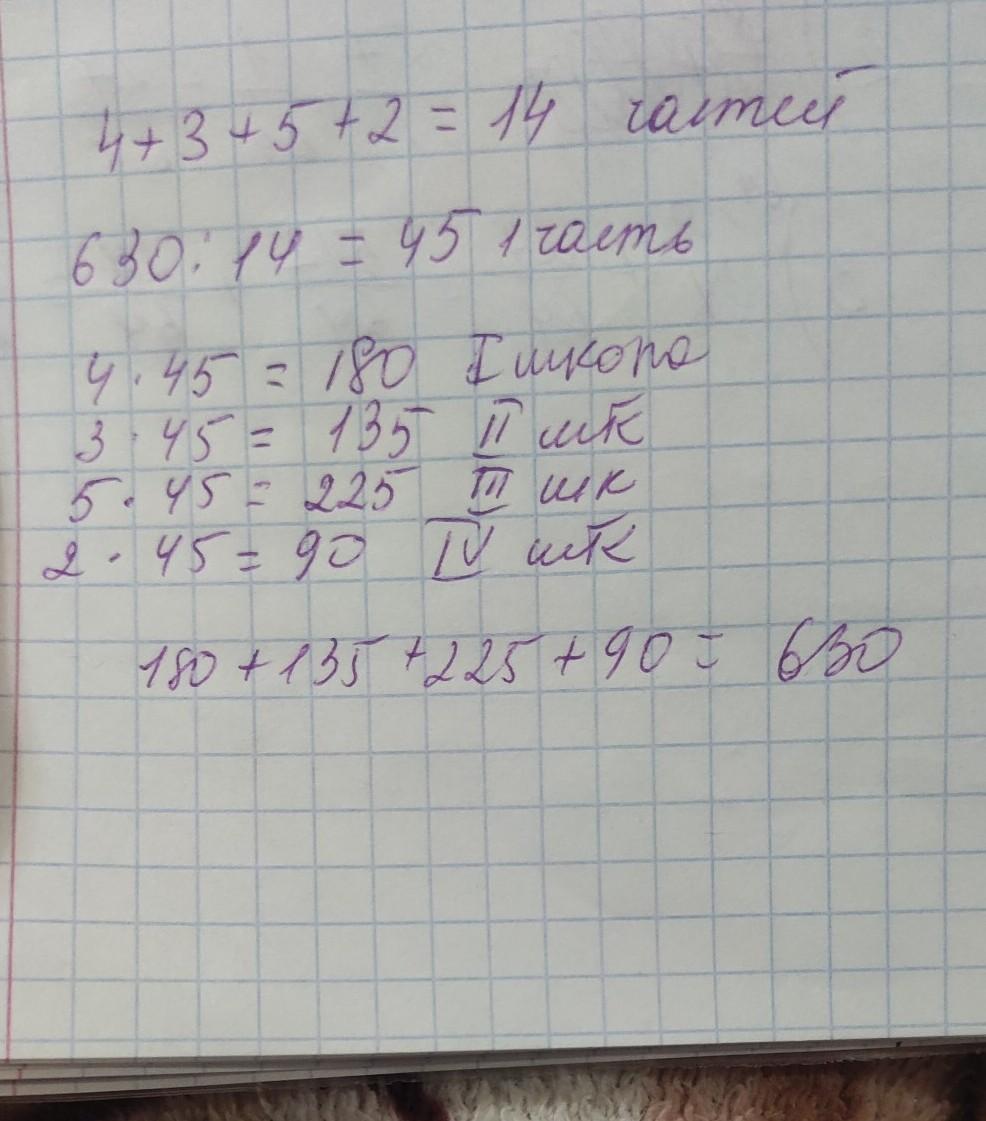 4+3+5+2=14 частей
630:14=45 1 часть
4·45=180 I школа
3·45=135 II шк
5·45=225 III шк
2·45=90 IV шк
180+135+225+90=630